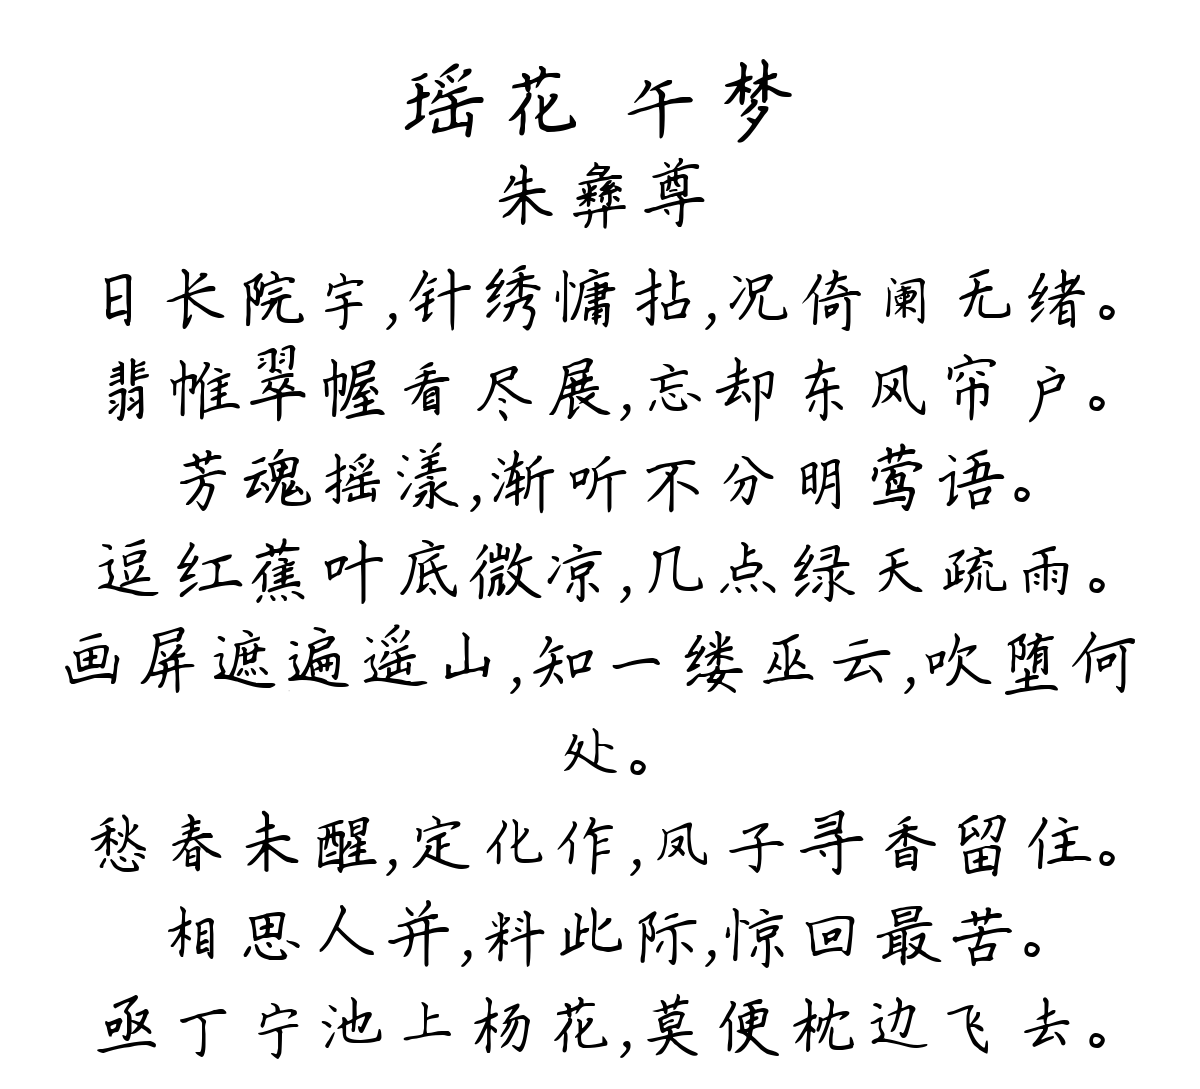 瑶花 午梦
朱彝尊
日长院宇,针绣慵拈,况倚阑无绪。
翡帷翠幄看尽展,忘却东风帘户。
芳魂摇漾,渐听不分明莺语。
逗红蕉叶底微凉,几点绿天疏雨。
画屏遮遍遥山,知一缕巫云,吹堕何
处。
愁春未醒,定化作,凤子寻香留住。
相思人并,料此际,惊回最苦。
亟丁宁池上杨花,莫便枕边飞去。